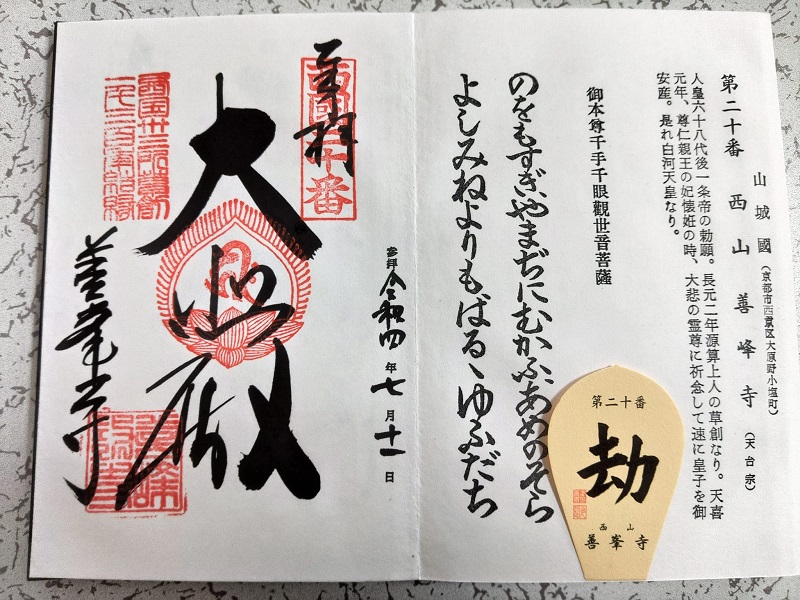 山城國(京都市西京区大原野小塩町)
第二十番 西山 善峰寺(天台宗)
人皇六十八代後一条帝の勅願。長元二年源算上人の草創なり。天喜
元年、尊仁親王の妃懐妊の時、大悲の霊尊に祈念して速に皇子を御
安産。是れ白河天皇なり。
御本尊千手千眼觀世音菩薩
のをもすぎやまぢにむかふあめのそら
よしみねよりもばるゝゆふだち
第二十番
劫
西山
善峯寺
参拝令和四年七月十一日
奉拝
西國二十番
大悲殿
西國卅三所草創
一千三百年結縁
善峯寺